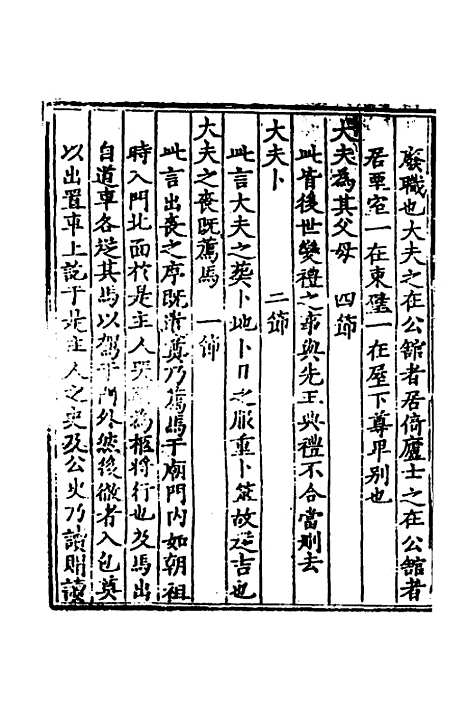 廢職也大夫之在公館者居倚廬士之在公館者
居堊室一在東墻一在屋下尊卑别也
大夫為其父母　四節
此皆後世變禮之事與先王典禮不合當刪去
大夫卜　二節
此言大夫之葬卜地卜日之服重卜筮故従吉也
大夫之喪既薦馬　一節
此言出喪之序既奠乃薦馬于廟門内如朝祖
時入門北面於是主人哭為柩將行也及馬出
自道車各従其馬以駕于門外然後徹者入包奠
以出置車上說于是主人之史及公史乃讀賵讀